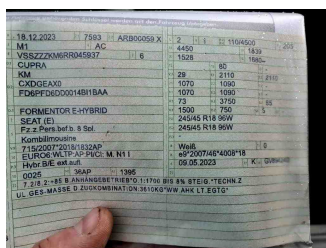 18.12.2023 7593 ARB00059 X 2 110/4500 205
M1 AC 4450 1839
VSSZZZKM6RR045937 6 1528
CUPRA 80
KM 29 2110 2110
CXDGEAX0 1070 1090
FD6PFD6DD0014BI1BAA 1070 1090
73 3750 55
FORMENTOR E-HYBRID 1500 750 5
SEAT (E) 245/45 R18 96W
Fz.z.Pers.bef.b. 8 Spl. 245/45 R18 96W
Kombilimousine
715/2007*2018/1832AP Weiß 0
EURO6;WLTP:AP;PI/CI; M, N1 I e9*2007/46*4008*18
Hybr.B/E ext.aufl. 09.05.2023 K
0025 36AP 1395
7.2/8.2:+85 B.ANHÄNGEBETRIEB*O.1:1700 BIS 8% STEIG.*TECHN.Z
UL.GES-MASSE D.ZUGKOMBINATION:3610KG*WW.AHK LT.EGTG*